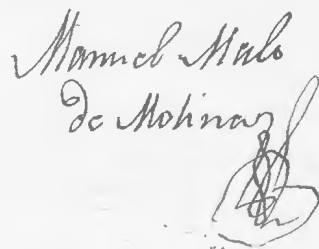 Manuel Malo
de Molina